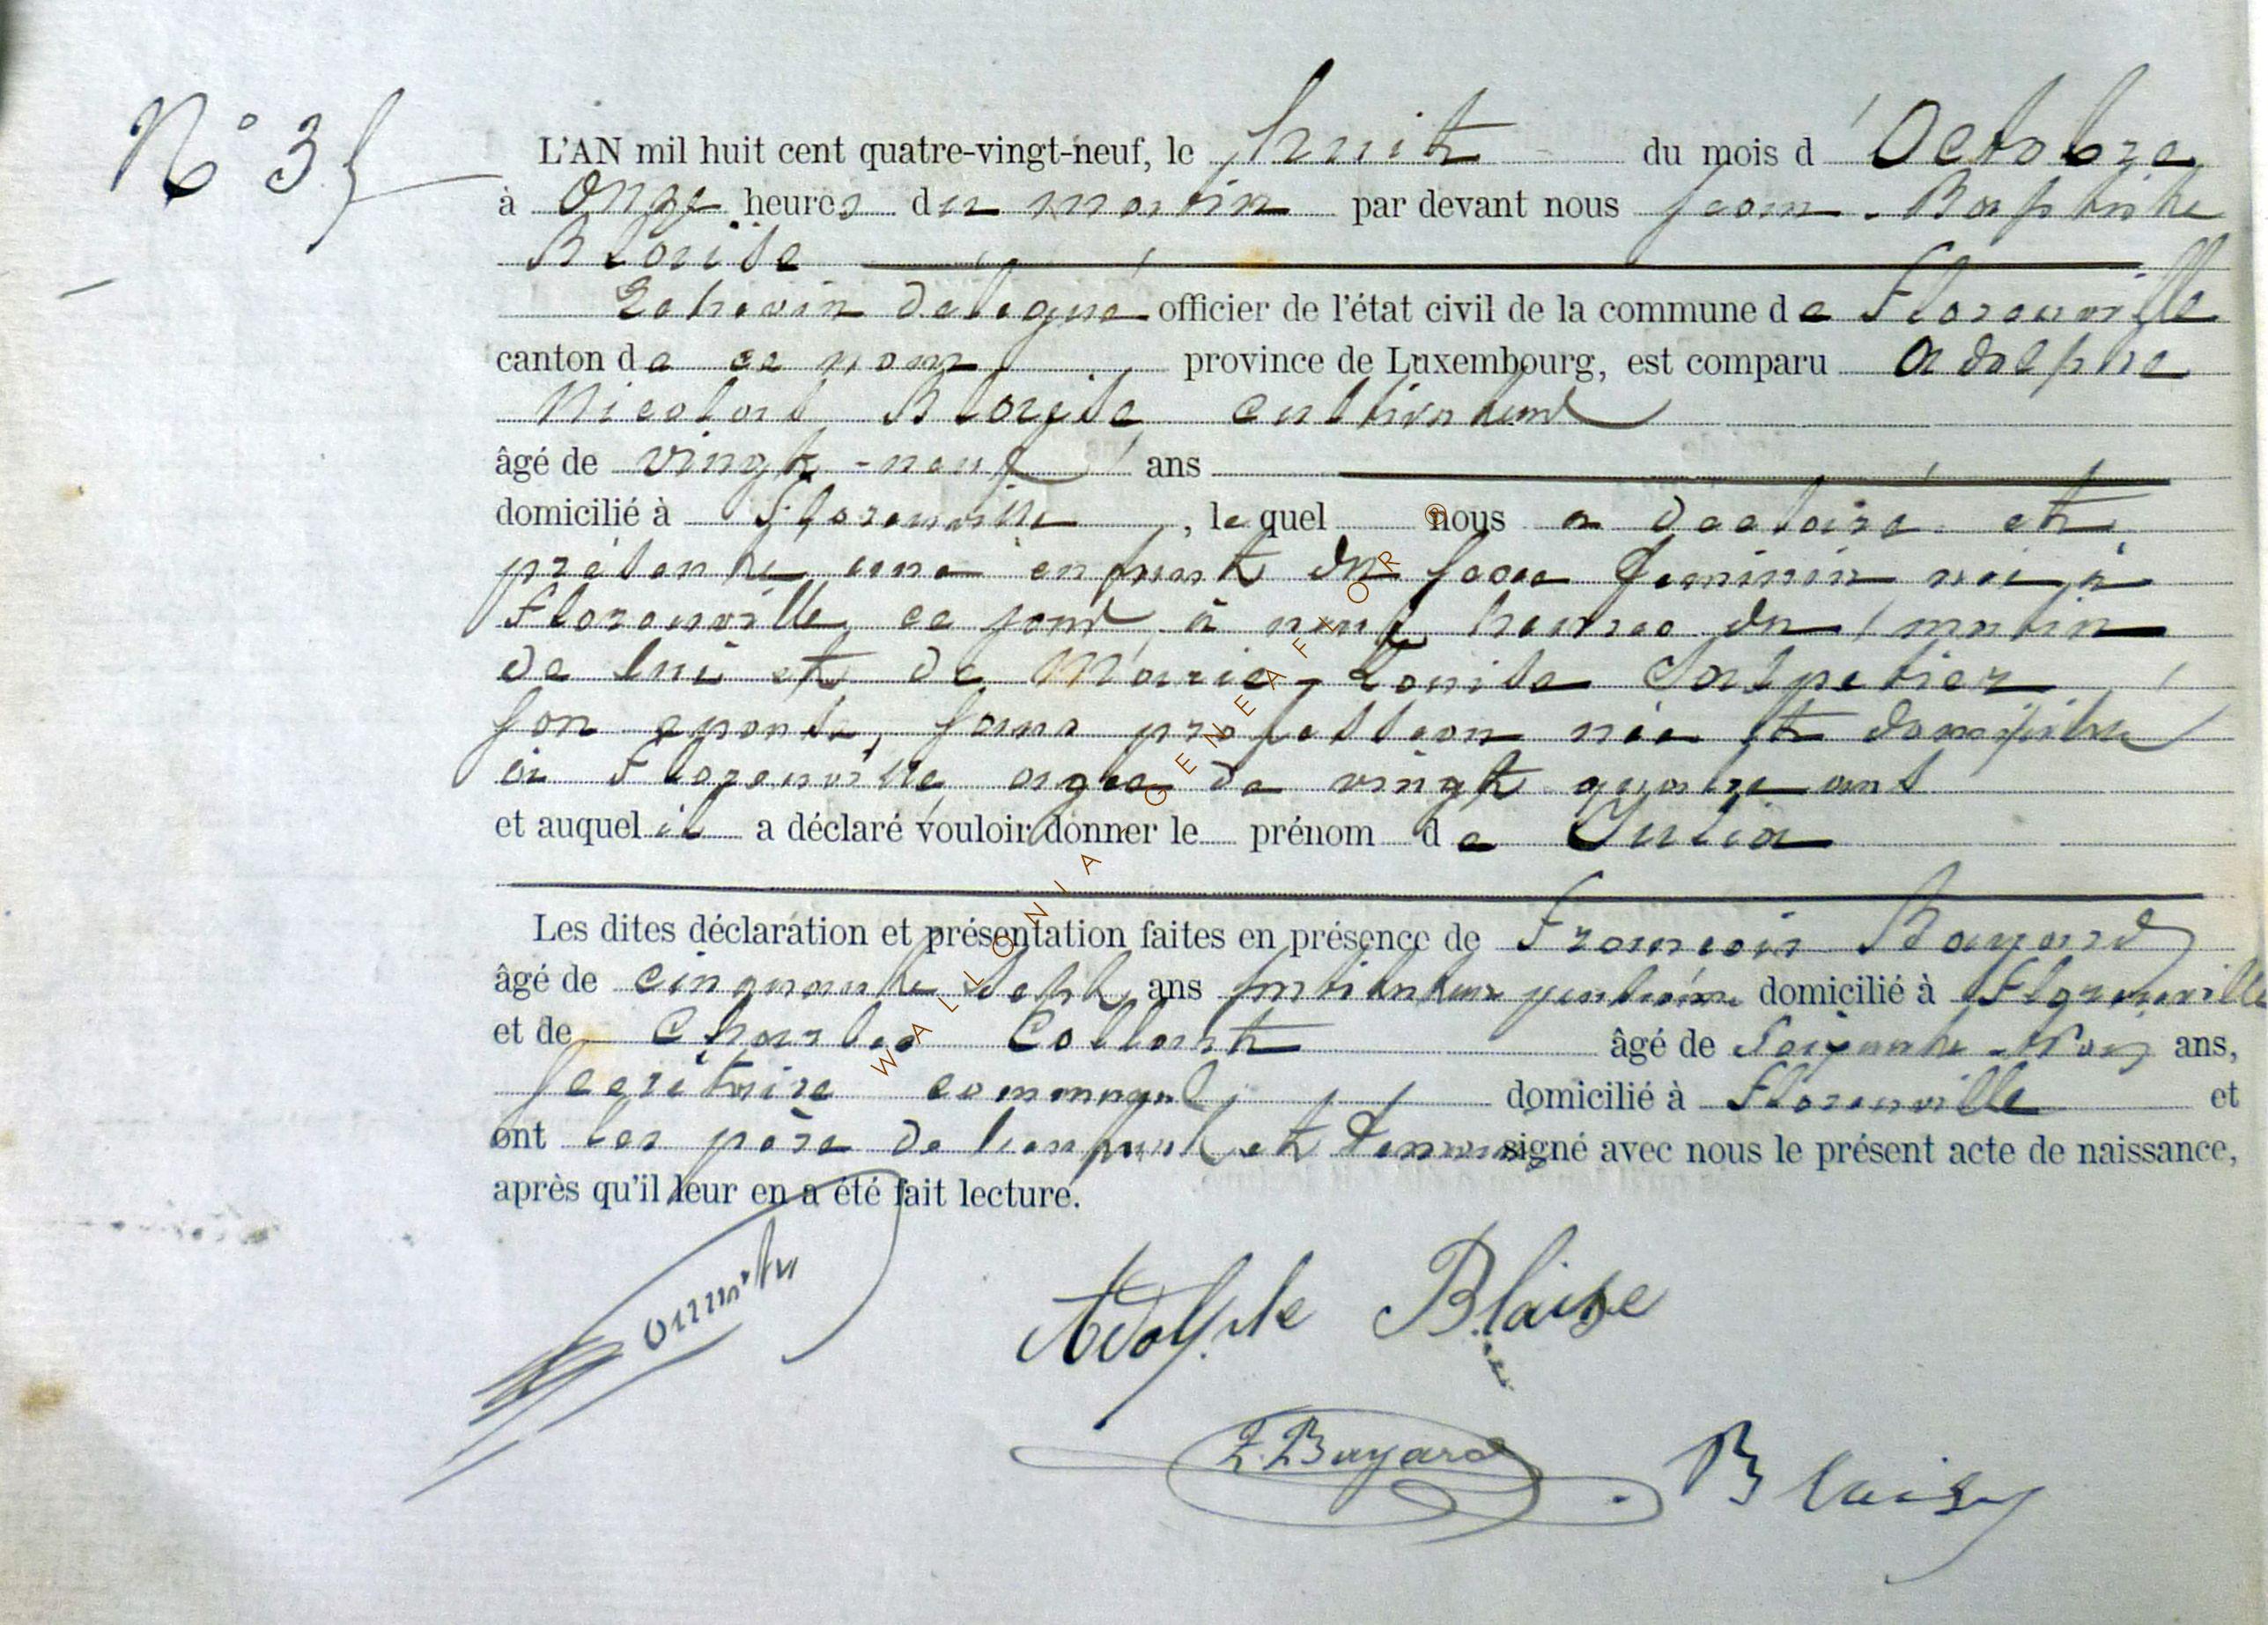 N° 35
L'AN mil huit cent quatre-vingt-neuf, le huit du mois d'Octobre
à Onze heures du matin par devant nous Jean-Baptiste
Blaise
Echevin délégué officier de l'état civil de la commune de Florenville
canton de ce nom province de Luxembourg, est comparu Adolphe
Nicolas Blaise cultivateur
âgé de vingt-neuf ans
domicilié à Florenville, lequel nous a déclaré et
présenté une enfant du sexe féminin née à
Florenville, ce jour, à neuf heures du matin
de lui et de Marie-Louise Salpetier
son épouse, sans profession née et domiciliée
à Florenville, agée de vingt quatre ans
et auquel il a déclaré vouloir donner le prénom de Julia
Les dites déclaration et présentation faites en présence de François Bayard
âgé de cinquante sept ans instituteur domicilié à Florenville
et de Charles Collart âgé de Soixante-trois ans,
secrétaire communal domicilié à Florenville et
ont les père de l'enfant et témoins signé avec nous le présent acte de naissance,
après qu'il leur en a été fait lecture.
Adolphe Blaise
F. Bayard Blaise
WALLONIA GENEA FLOR ®